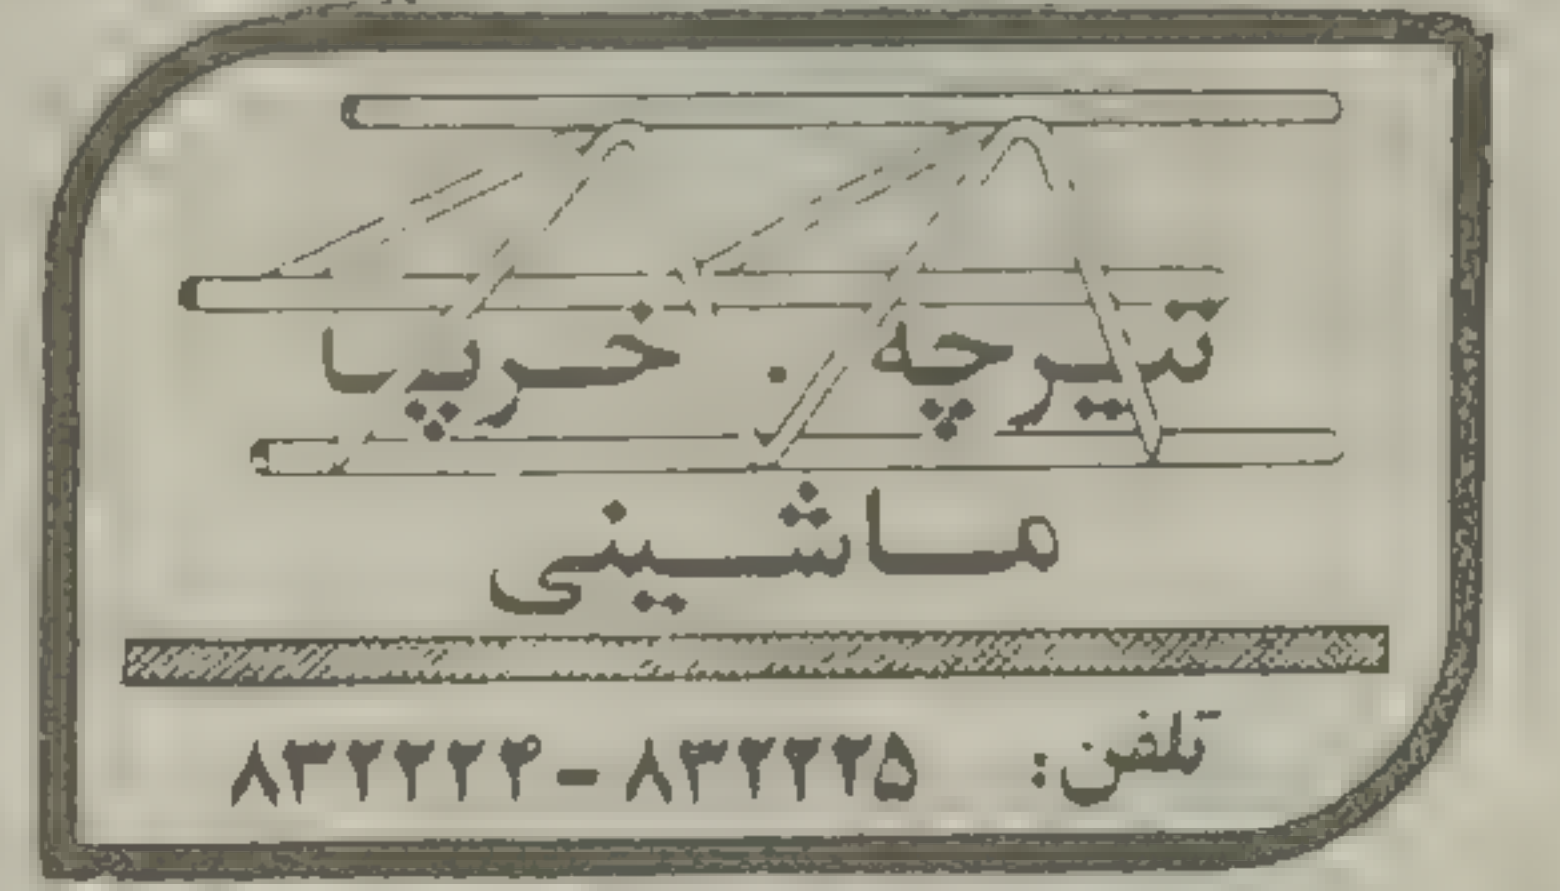 تیرچه . خرپا
ماشینی
تلفن: ۸۳۲۲۲۵ - ۸۳۲۲۲۴